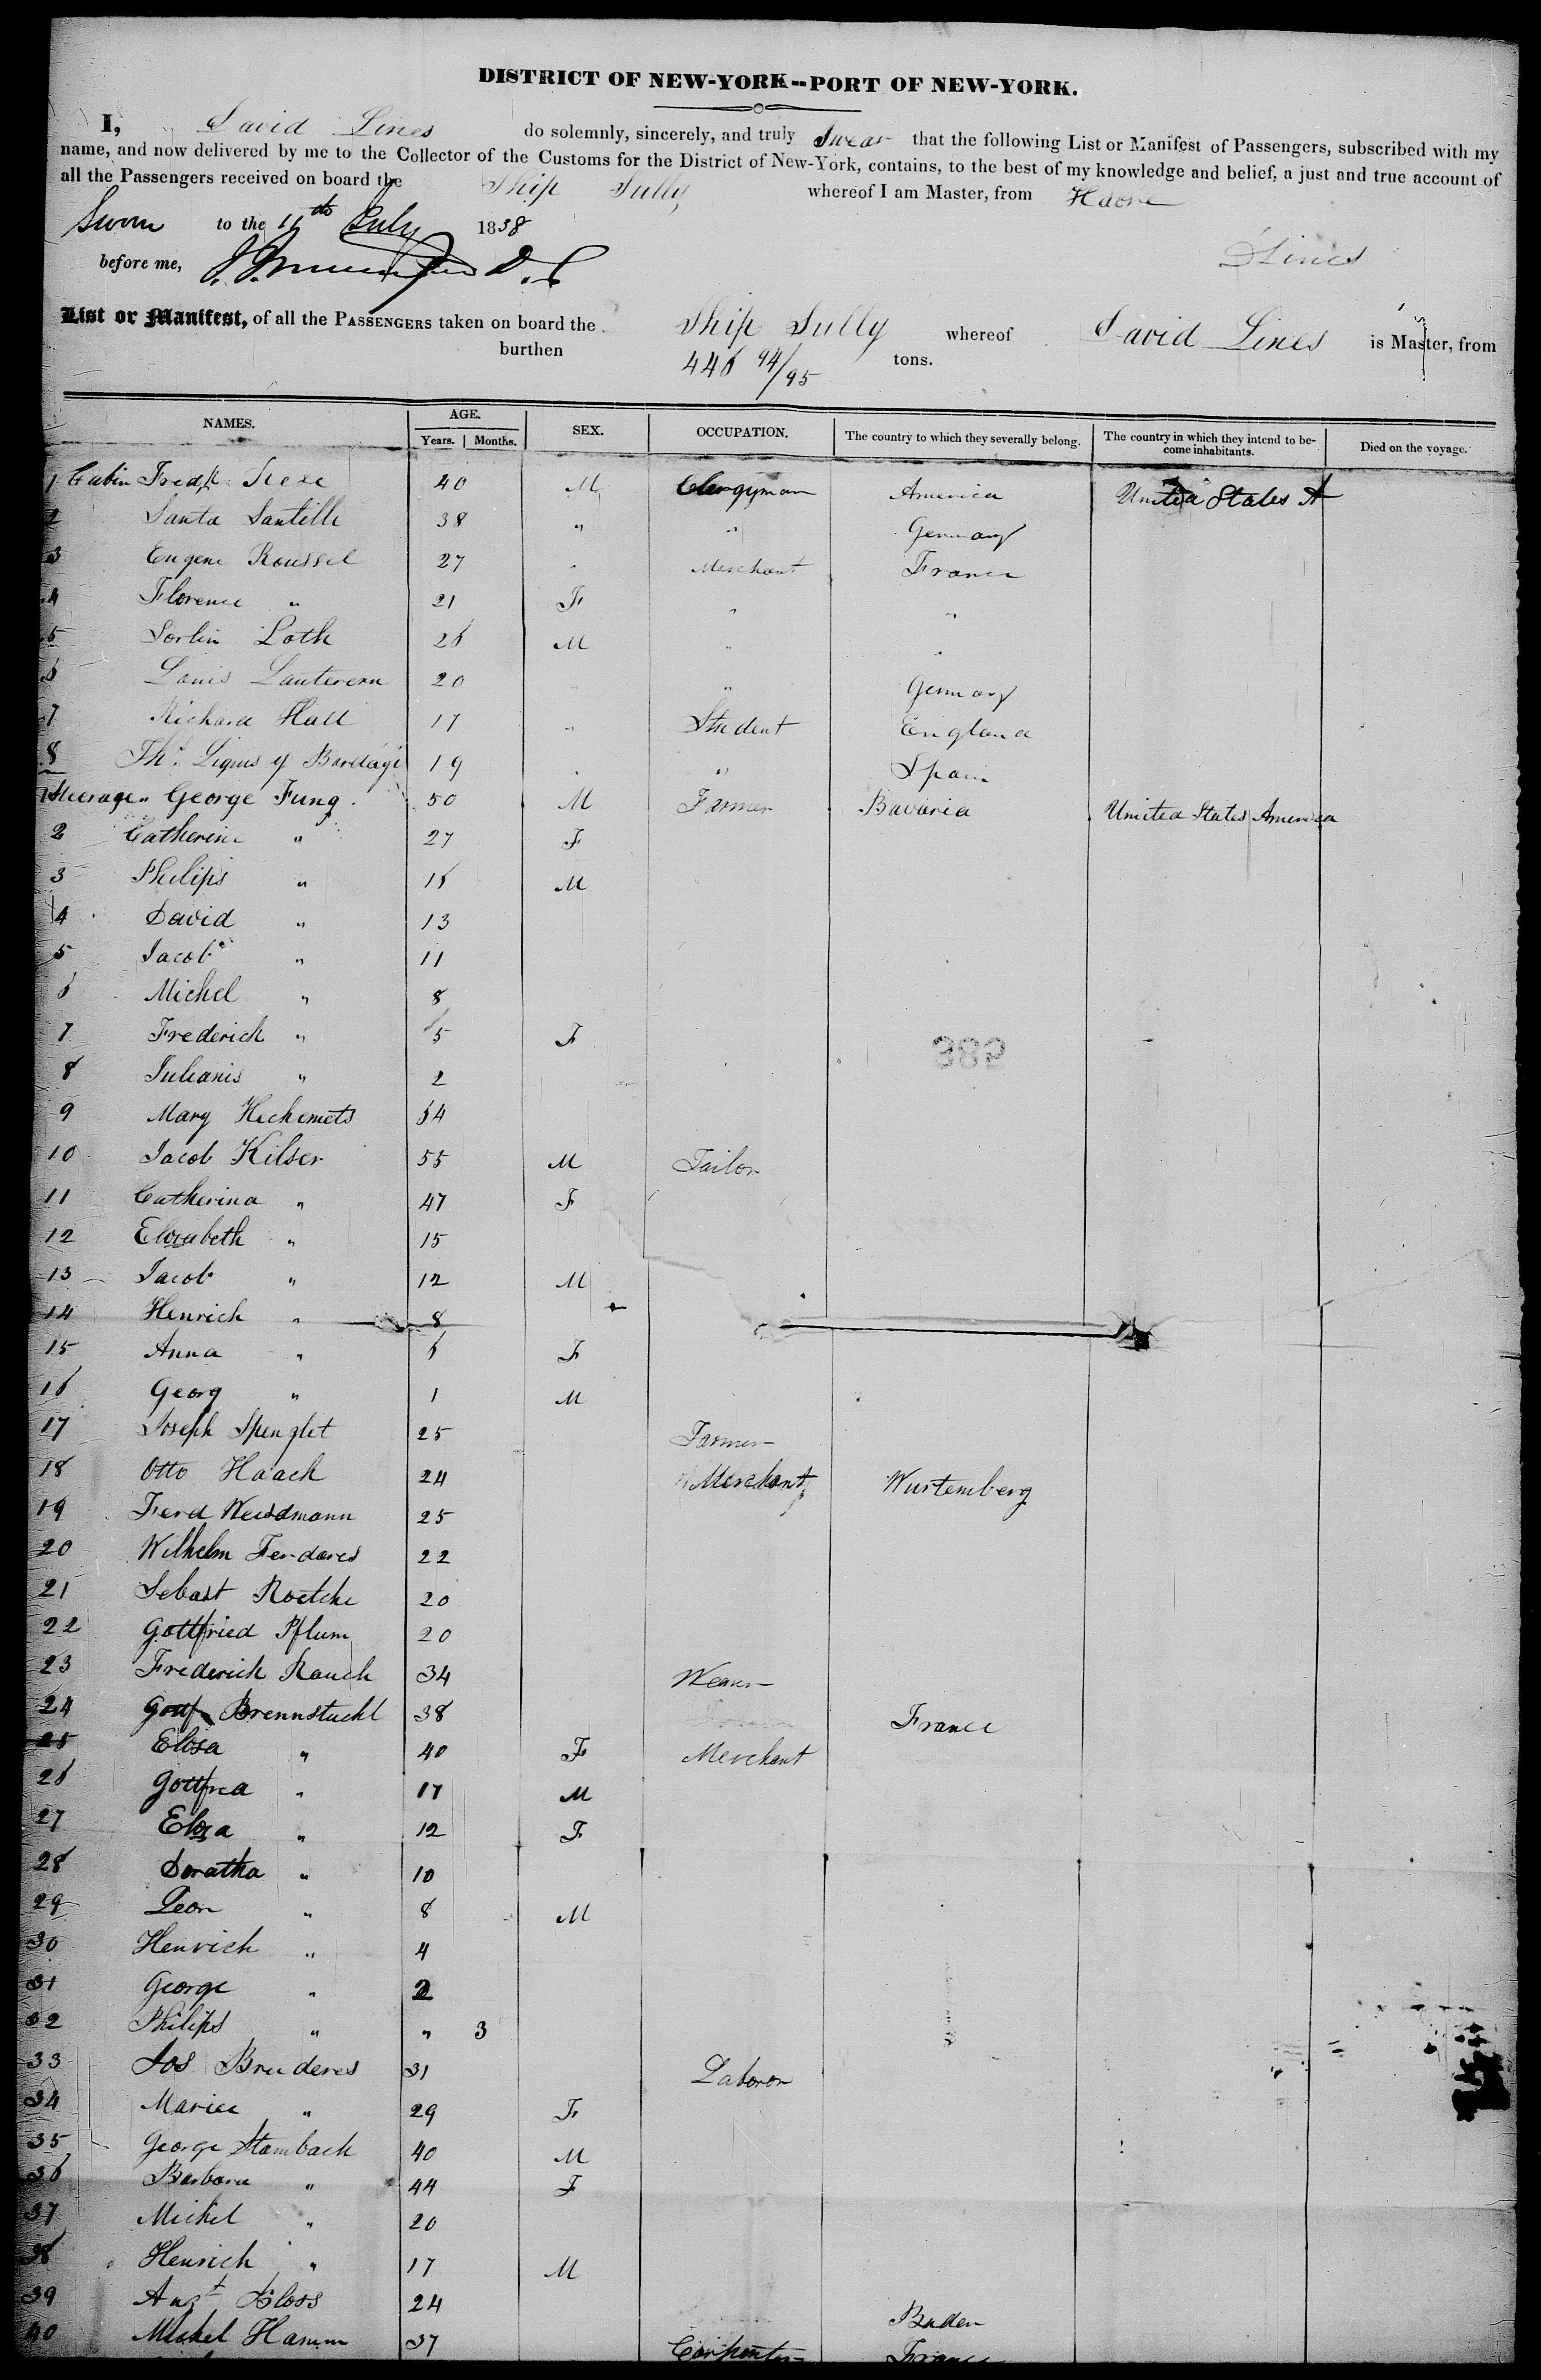 DISTRICT OF NEW-YORK--PORT OF NEW-YORK.
I, David Lines do solemnly, sincerely, and truly Swear that the following List or Manifest of Passengers, subscribed with my
name, and now delivered by me to the Collector of the Customs for the District of New-York, contains, to the best of my knowledge and belief, a just and true account of
all the Passengers received on board the Ship Sully whereof I am Master, from Havre
Sworn to the 11th July 1838
D Lines
before me,
List or Manifest, of all the PASSENGERS taken on board the Ship Sully whereof David Lines is Master, from
burthen 446 94/95 tons.
NAMES. AGE. SEX. OCCUPATION. The country to which they severally belong. The country in which they intend to be- Died on the voyage.
Years. Months. come inhabitants.
1 Cabin Fredk 40 M Clergyman America United States A
2 Santa Santille 38 " " Germany
3 Eugene Roussel 27 " Merchant France
4 Florence " 21 F " "
5 Sorlin Loth 26 M " "
6 Louis Lauterern 20 " " Germany
7 Richard Hall 17 " Student England
8 Th. y Bardagi 19 " " Spain
1 Steerage " George Fung 50 M Farmer Bavaria United States America
2 Catherine " 27 F
3 Philips " 16 M
4 David " 13
5 Jacob " 11
6 Michel " 8
7 Frederich " 5 F
385
8 Julianis " 2
9 Mary Hechemets 64
10 Jacob Kilser 55 M Tailor
11 Catherina " 47 F
12 Elizabeth " 15
13 Jacob " 12 M
14 Henrich " 8
15 Anna " 6 F
16 Georg " 1 M
17 Joseph Spenglet 25 Farmer
18 Otto Haach 24 Merchant Wurtemberg
19 Ferd Weisdmann 25
20 Wilhelm Ferdares 22
21 Sebast Roetche 20
22 Gottfried Pflum 20
23 Frederich Rauch 34 Weaver
24 Gottf Brennstuchl 38 France
25 Elisa " 40 F Merchant
26 Gottfred " 17 M
27 Eliza " 12 F
28 Doratha " 10
29 Leon " 8 M
30 Henrich " 4
31 George " 2
32 Philips " " 3
33 Jos Bruderes 31 Laboror
34 Mariee " 29 F
35 George Stambach 40 M
36 Barbara " 44 F
37 Michel " 20
38 Henrich " 17 M
39 Augt Kloss 24 Baden
40 Michel Hamm 37 Carpenter France